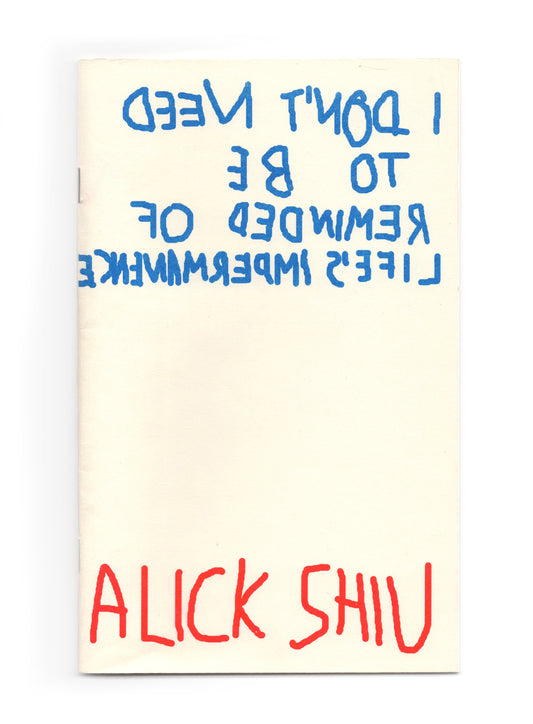 I DON'T NEED
TO BE
REMINDED OF
LIFE'S IMPERMANENCE
ALICK SHIU